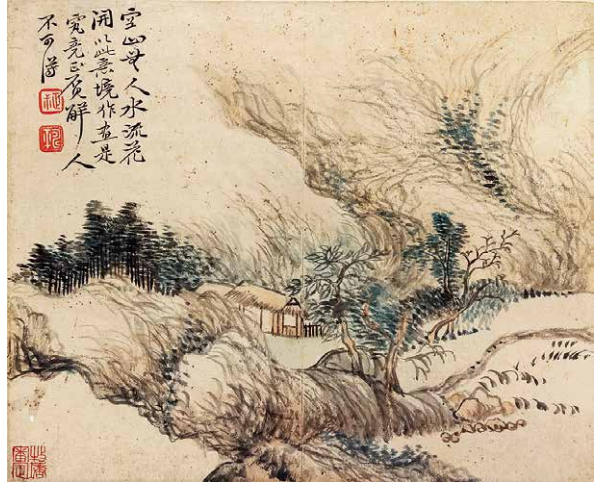 空山無人水流花
開以此意境作畫是
究竟正索解人
不可得